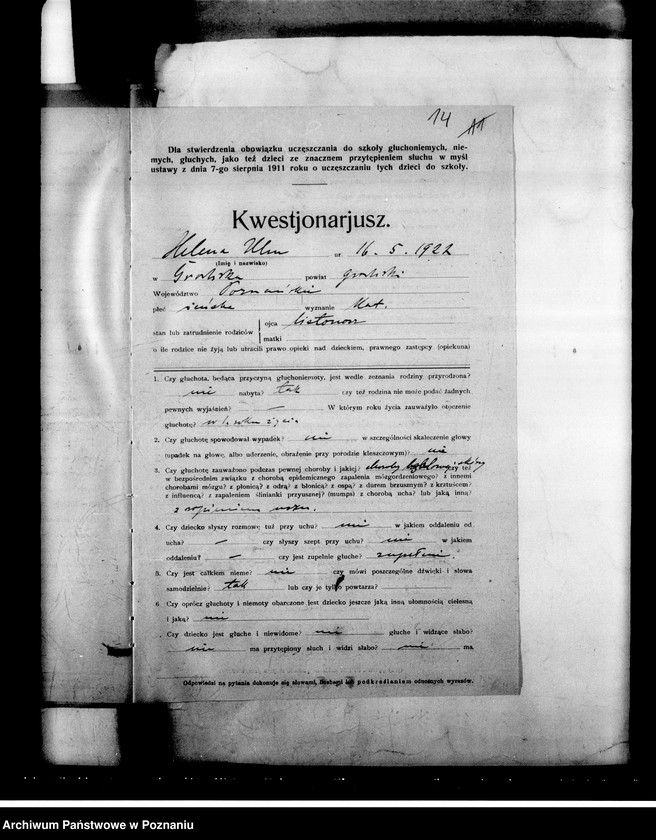 14
Dla stwierdzenia obowiązku uczęszczania do szkoły głuchoniemych, nie-
mych, głuchych, jako też dzieci ze znacznem przytępieniem słuchu w myśl
ustawy z dnia 7-go sierpnia 1911 roku o uczęszczaniu tych dzieci do szkoły.
Kwestjonarjusz.
Helena Ulm ur. 16. 5. 1922
(Imię i nazwisko)
w Grodzisku powiat grodziski
Województwo Poznańskie
płeć żeńska wyznanie Kat.
stan lub zatrudnienie rodziców
ojca listonosz
matki
o ile rodzice nie żyją lub utracili prawo opieki nad dzieckiem, prawnego zastępcy (opiekuna)
1. Czy głuchota, będąca przyczyną głuchoniemoty, jest wedle zeznania rodziny przyrodzona?
nie nabyta? tak czy też rodzina nie może podać żadnych
pewnych wyjaśnień? — W którym roku życia zauważyło otoczenie
głuchotę? w roku życia
2. Czy głuchotę spowodował wypadek? nie w szczególności skaleczenie głowy
(upadek na głowę, albo uderzenie, obrażenie przy porodzie kleszczowym)? nie
3. Czy głuchotę zauważono podczas pewnej choroby i jakiej? czy też
w bezpośrednim związku z chorobą epidemicznego zapalenia mózgordzeniowego? z innemi
chorobami mózgu? z płonicą? z odrą? z błonicą? z ospą? z durem brzusznym? z krztuścem?
z influencą? z zapaleniem ślinianki przyusznej? (mumps) z chorobą ucha? lub jaką inną?
z ropieniem uszu.
4. Czy dziecko słyszy rozmowę tuż przy uchu? nie w jakiem oddaleniu od
ucha? — czy słyszy szept przy uchu? nie w jakiem
oddaleniu? — czy jest zupełnie głuche? zupełnie.
5. Czy jest całkiem nieme? nie czy mówi poszczególne dźwięki i słowa
samodzielnie? tak lub czy je tylko powtarza?
6 Czy oprócz głuchoty i niemoty obarczone jest dziecko jeszcze jaką inną ułomnością cielesną
i jaką? nie
. Czy dziecko jest głuche i niewidome? nie głuche i widzące słabo?
nie ma przytępiony słuch i widzi słabo? nie ma
Odpowiedzi na pytania dokonuje się słowami, liczbami lub podkreślaniem odnośnych wyrazów.
Archiwum Państwowe w Poznaniu